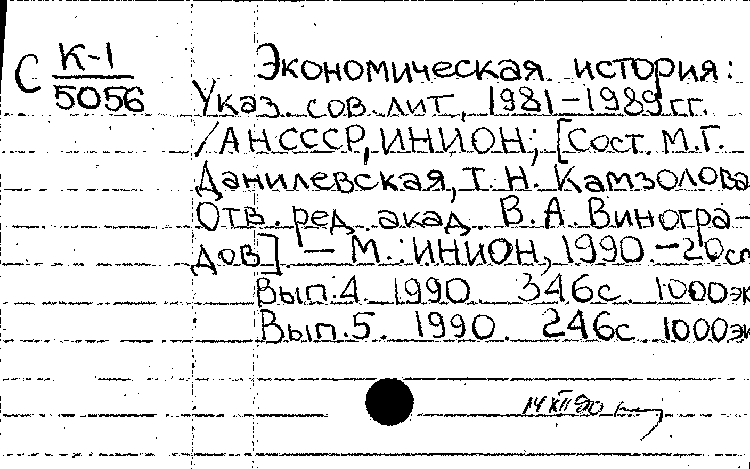 С К-1
5056
Экономическая история:
Указ. сов. лит., 1981-1989 гг.
/АН СССР, ИНИОН; [Сост. М.Г.
Данилевская, Т.Н. Камзолова
Отв. ред. акад. В.А. Виногра-
дов] — М.: ИНИОН, 1990. - 20 см
Вып. 4. 1990. 346с. 1000 эк
Вып. 5. 1990. 246с 1000 эк
14 XII 90